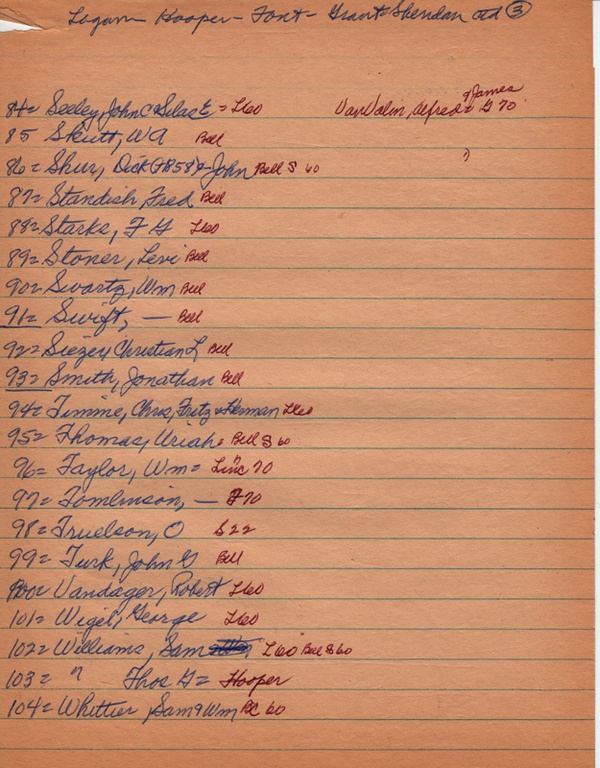 Logan Hooper - Font - Grant Sheridan ctd ③
84= Seeley, John C & Silas E = L60 VanValin, Alfred & James G 70
85 Skutt, WA Bell
86= Shur, Dick (+1858) & John Bell S 60
87= Standish, Fred Bell
88= Starks, F G L60
89= Stoner, Levi Bell
90= Swartz, Wm Bell
91= Swift, — Bell
92= Christian L Bell
93= Smith, Jonathan Bell
94= Timme, Chris, Fritz & Herman L60
95= Thomas, Uriah = Bell S 60
96= Taylor, Wm = Linc 70
97= Tomlinson, — F70
98= Truelson, O S22
99= Turk, John G Bell
100= Vandager, Robert L60
101= Wigel, George L60
102= Williams, Sam L60 Bell S 60
103= " Thos G = Hooper
104= Whittier, Sam & Wm BC 60